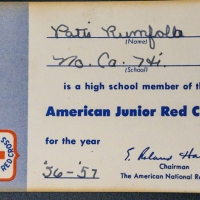 Patti Rumfolla
(Name)
No. Ca. Hi.
(School)
is a high school member of th
American Junior Red C
for the year
'56-'57
E. Roland Ha
Chairman
The American National Re
RED CROSS